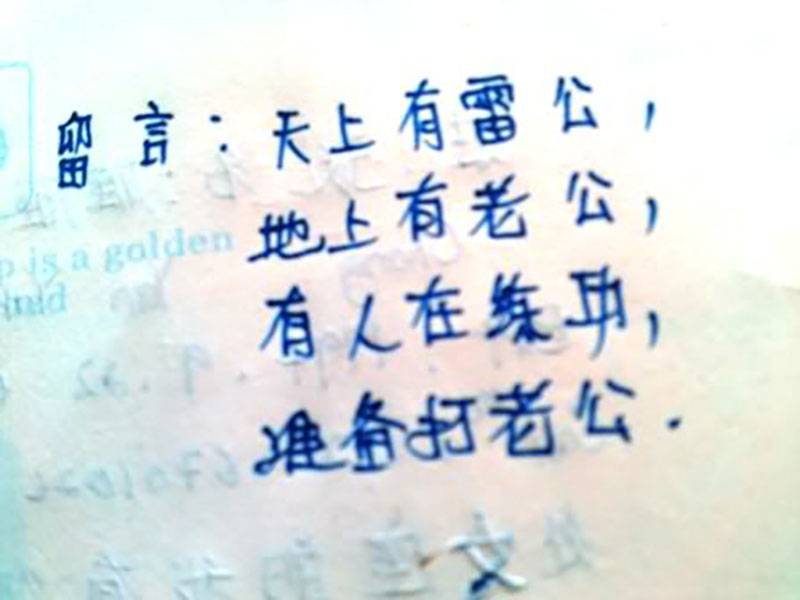 留言：天上有雷公，
地上有老公，
p is a golden
有人在练功，
准备打老公.